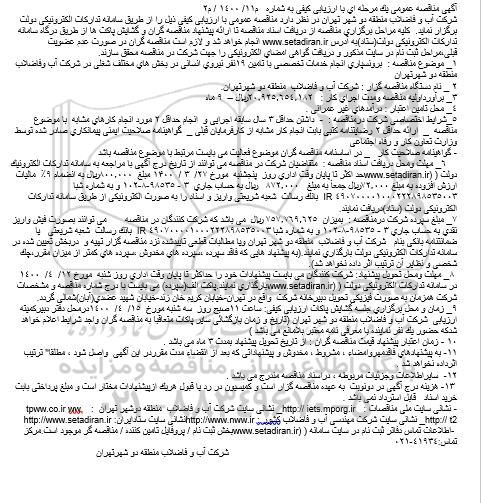 آگهی مناقصه عمومی یك مرحله ای با ارزیابی كیفی به شماره م۲/ ۱۴۰۰ /۱۱م
شرکت آب و فاضلاب منطقه دو شهر تهران در نظر دارد مناقصه عمومی با ارزیابی کیفی ذیل را از طریق سامانه تدارکات الکترونیکی دولت
برگزار نماید. کلیه مراحل برگزاری مناقصه از دریافت اسناد مناقصه تا ارائه پیشنهاد مناقصه گران و گشایش پاکت ها از طریق درگاه سامانه
تدارکات الکترونیکی دولت(ستاد)به آدرس www.setadiran.ir انجام خواهد شد و لازم است مناقصه گران در صورت عدم عضویت
قبلی،مراحل ثبت نام در سایت مذکور و دریافت گواهی امضای الکترونیکی را جهت شرکت در مناقصه محقق سازند.
۱_ موضوع مناقصه : برونسپاری انجام خدمات تخصصی با تامین ۱۹نفر نیروی انسانی در بخش های مختلف شغلی در شرکت آب وفاضلاب
منطقه دو شهرتهران
۲ _ نام دستگاه مناقصه گزار : شرکت آب و فاضلاب منطقه دو شهرتهران.
۳ _ برآورداولیه مناقصه ومدت اجرای کار : ۲۰،۹۲۵،۶۵۴،۱۸۲ریال – ۹ ماه
۴_محل تامین اعتبار : درآمدهای غیر عمرانی
۵_ شرایط اختصاصی شرکت درمناقصه : - داشتن حداقل ۳ سال سابقه اجرایی و انجام حداقل ۲ مورد انجام کارهای مشابه با موضوع
مناقصه _ ارائه حداقل ۲ رضایتنامه کتبی بابت انجام کار مشابه از کارفرمایان قبلی _ گواهینامه صلاحیت ایمنی پیمانکاری صادر شده توسط
وزارت تعاون کار و رفاه اجتماعی
- گواهینامه صلاحیت کار _ در اساسنامه مناقصه گران موضوع فعالیت می بایست مرتبط با موضوع مناقصه باشد
۶_ مهلت ومحل دریافت اسناد مناقصه : متقاضیان شرکت در مناقصه می توانند از تاریخ درج آگهی با مراجعه به سامانه تدارکات الکترونیك
دولت ( www.setadiran.ir)حد اکثر تا پایان وقت اداری روز پنجشنبه مورخ ۲۷/ ۳ / ۱۴۰۰ مبلغ ۸۰۰،۰۰۰ریال به انضمام ۹٪ مالیات
ارزش افزوده به مبلغ ۷۲،۰۰۰ریال جمعا به مبلغ ۸۷۲،۰۰۰ ریال به حساب جاری ۳ - ۹۸۵۳۵-۱۰۲ و به شماره شبا
IR ۴۹۰۷۰۰۰۰۱۰۰۰۲۲۲۸۹۸۵۳۵۰۰۳ بانك رسالت شعبه شریعتی واریز و اسناد را به صورت الکترونیکی از طریق سامانه تدارکات
الکترونیکی دولت (ستاد)دریافت نمایند.
۷_ مبلغ سپرده شرکت درمناقصه : بمیزان ۷۵۷،۷۶۹،۶۲۵ ریال می باشد که شرکت کنندگان در مناقصه می توانند بصورت فیش واریز
نقدی به حساب جاری ۳ - ۹۸۵۳۵-۱۰۲ و به شماره شبا IR ۴۹۰۷۰۰۰۰۱۰۰۰۲۲۲۸۹۸۵۳۵۰۰۳ بانك رسالت شعبه شریعتی یا
ضمانتنامه بانکی بنام شرکت آب و فاضلاب منطقه دو شهر تهران ویا مطالبات قطعی تاییدشده نزد مناقصه گزار تهیه و دربخش تعیین شده در
سامانه تدارکات الکترونیکی دولت بارگذاری نمایند.(به پیشنهاد هایی که فاقد سپرده ،سپرده های مخدوش ،سپرده های کمتر از میزان مقرر،چك
شخصی و نظایر آن ترتیب اثر داده نخواهد شد).
۸_ مهلت ومحل تحویل پیشنهاد: شرکت کنندگان می بایست پیشنهادات خود را حداکثر تا پایان وقت اداری روز شنبه مورخ ۱۲/ ۴/ ۱۴۰۰
در سامانه تدارکات الکترونیکی دولت ( www.setadiran.ir)بارگذاری نمایند.پاکت الف(سپرده) می بایست با درج شماره مناقصه و مشخصات
شرکت همزمان به صورت فیزیکی تحویل دبیرخانه شرکت واقع در تهران-خیابان کریم خان زند-خیابان شهید عضدی(آبان)شمالی گردد.
۹_ زمان و محل برگزاری جلسه گشایش پاکات ارزیابی کیفی: ساعت ۱۱صبح روز سه شنبه مورخ ۱۵/ ۴/ ۱۴۰۰درمحل دفتر دبیرکمیته
ارزیابی شرکت آب و فاضلاب منطقه دو شهر تهران (تاریخ و زمان بازگشائی سایر پاکات متعاقبا به مناقصه گران واجد شرایط اعلام خواهد
شدکه حضور یك نفر نماینده با معرفی نامه معتبر بلامانع می باشد )
۱۰ - زمان اعتبار پیشنهاد قیمت مناقصه گران : از تاریخ تحویل پیشنهاد بمدت ۳ ماه می باشد
۱۱- به پیشنهادهای فاقدمهروامضاء ، مشروط ، مخدوش و پیشنهاداتی که بعد از انقضاء مدت مقرردر این آگهی واصل شود ، مطلقا" ترتیب
اثرداده نخواهد شد
۱۲- سایراطلاعات وجزئیات مربوطه ، دراسناد مناقصه مندرج می باشد.
۱۳- هزینه درج آگهی در دونوبت به عهده مناقصه گزار است و کمیسیون در رد یا قبول هریك ازپیشنهادات مختار است و مبلغ پرداختی بابت
خرید اسناد قابل استرداد نمی باشد .
- نشانی سایت ملی مناقصات : http:// iets.mporg.ir_ نشانی سایت شرکت آب و فاضلاب منطقه دوشهر تهران : tpww.co.ir
http:// t2_ نشانی سایت شرکت مهندسی آب و فاضلاب کشور http://www.nww.ir_نشانی سایت ستادایران: http://www.setadiran.ir
-اطلاعات تماس دفاتر ثبت نام در سایت سامانه ( www.setadiran.ir)بخش ثبت نام / پروفایل تامین کننده / مناقصه گر موجود است.مرکز
تماس:۴۱۹۳۴-۰۲۱
شرکت آب و فاضلاب منطقه دوشهرتهران